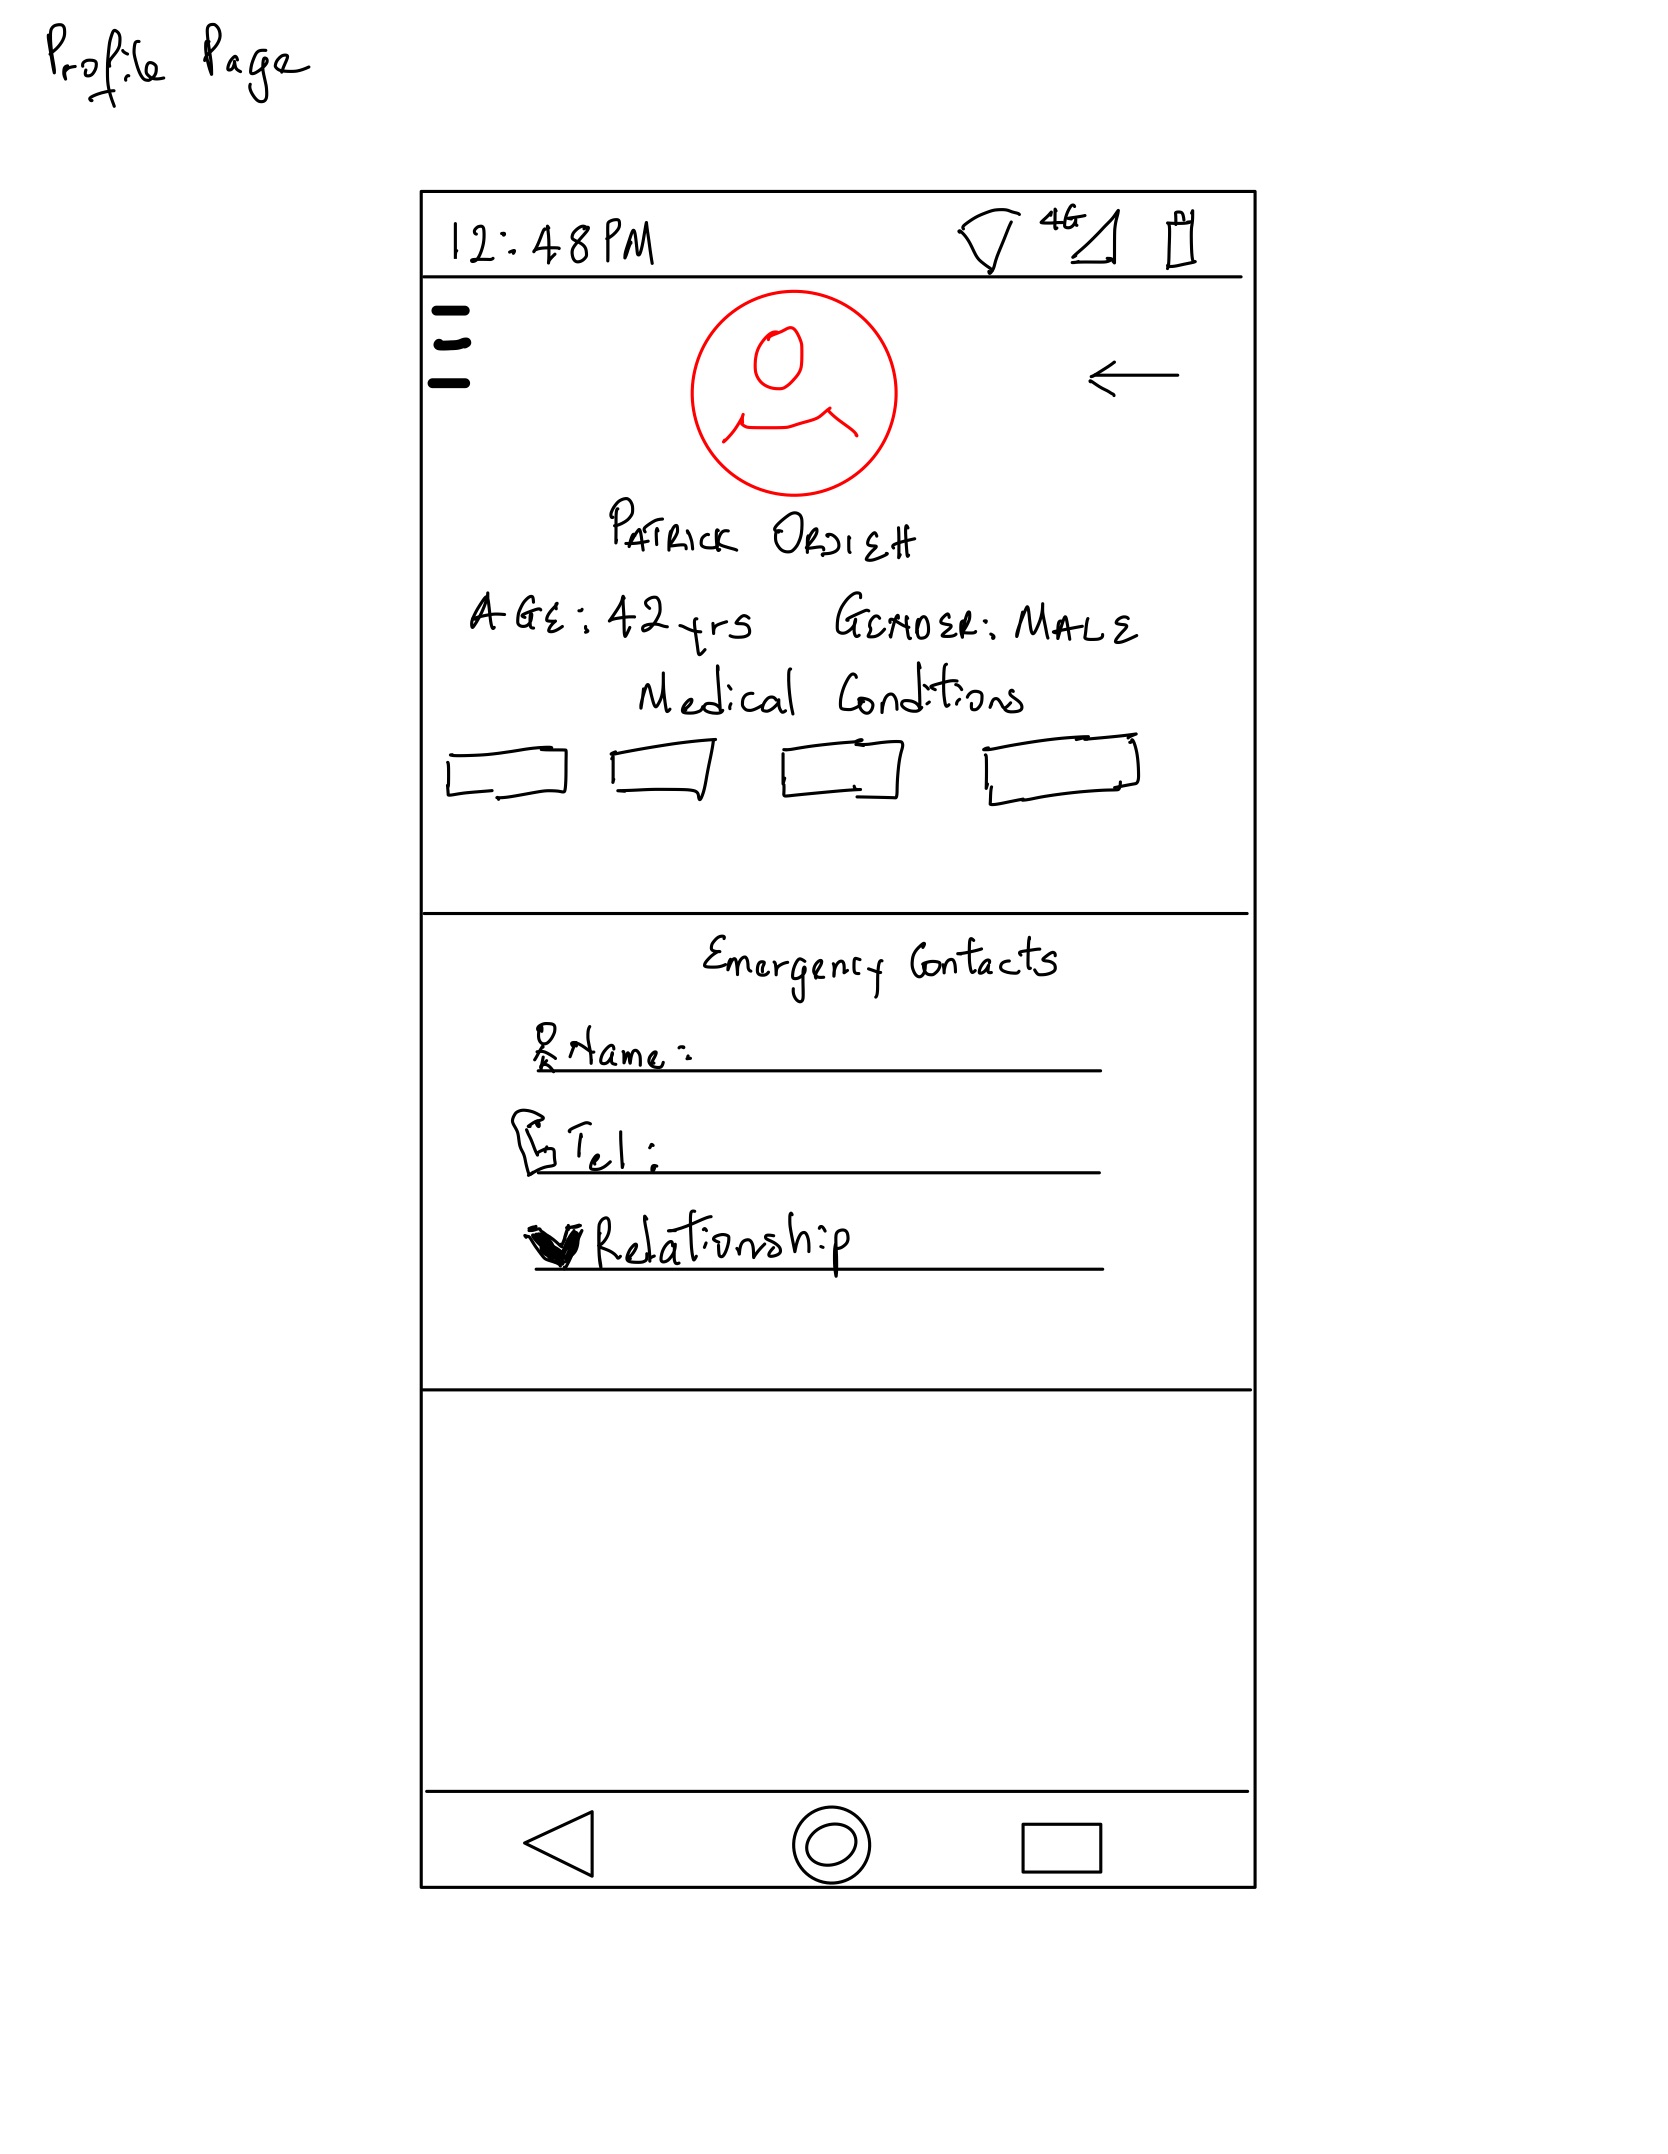 Profile Page
12:48PM 4G
PATRICK ORDIEH
AGE: 42 yrs GENDER: MALE
Medical Conditions
Emergency Contacts
Name:
Tel:
Relationship